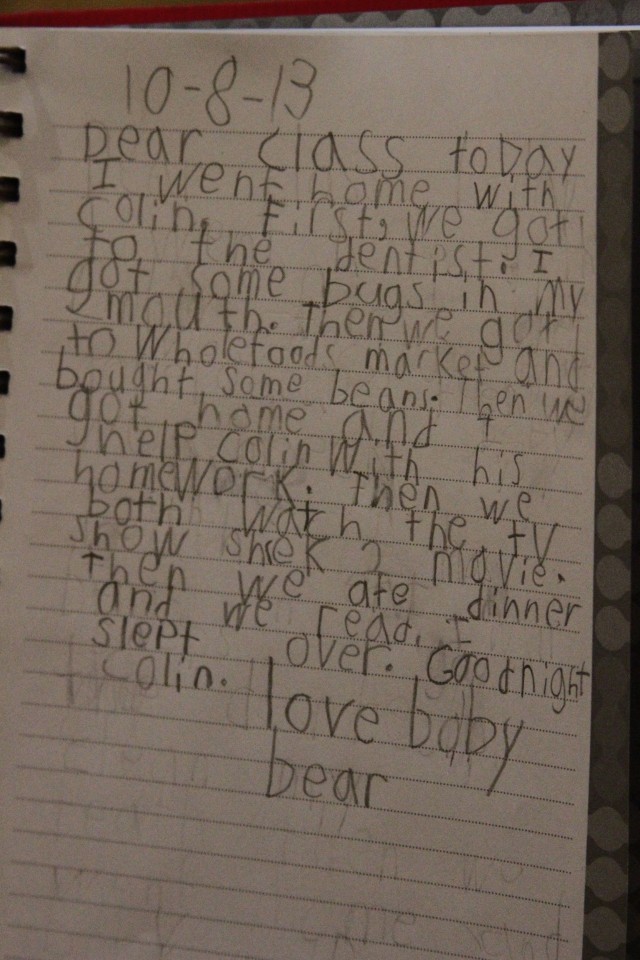 10-8-13
Dear class today
I went home with
colin. First, we got
to the dentist. I
got some bugs in my
mouth. Then we got
to wholefoods market and
bought some beans. Then we
got home and I
help colin with his
homework. Then we
both wath the tv
show shek 2 movie.
then we ate dinner
and we read. I
slept over. Goodnight
colin.
love baby
bear